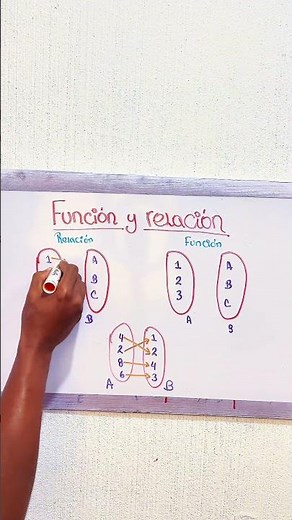 Función y relación
Relación Función
1 A 1 A
B 2 B
C 3 C
B A B
4 1
2 2
8 4
6 3
A B